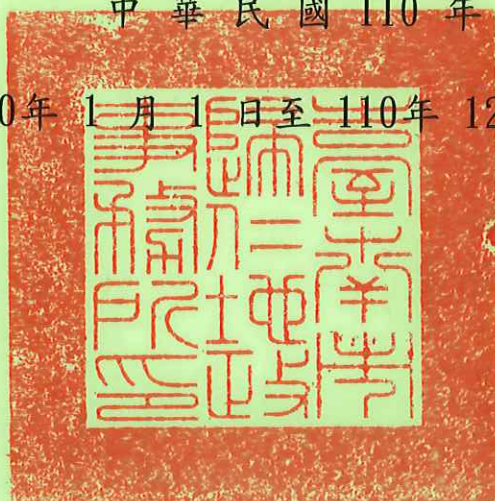 中 華 民 國 110 年
0年 1 月 1 日至 110年 12
臺南市
歸仁地政
事務所印